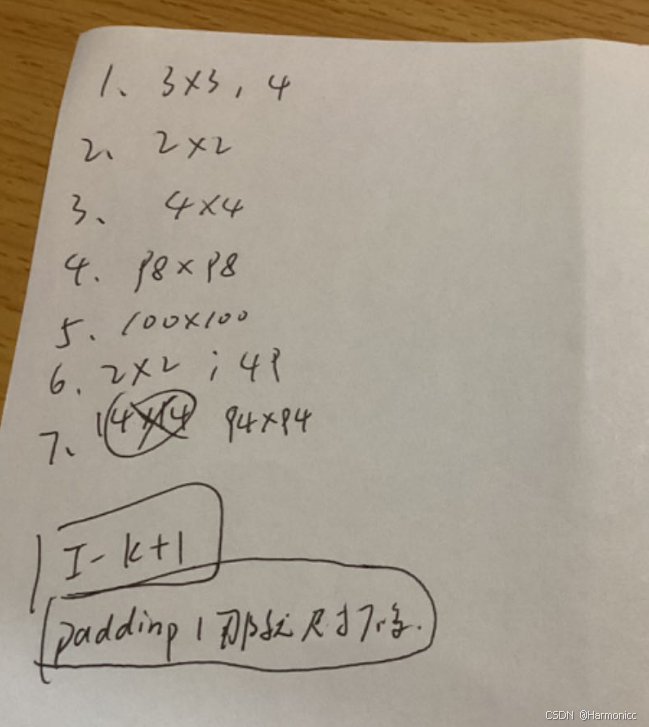 1、3×3, 4
2、2×2
3、4×4
4. 98×98
5. 100×100
6. 2×2 ; 49
7、94×94
I-k+1
padding 1 尺寸不变.
CSDN @Harmonicc